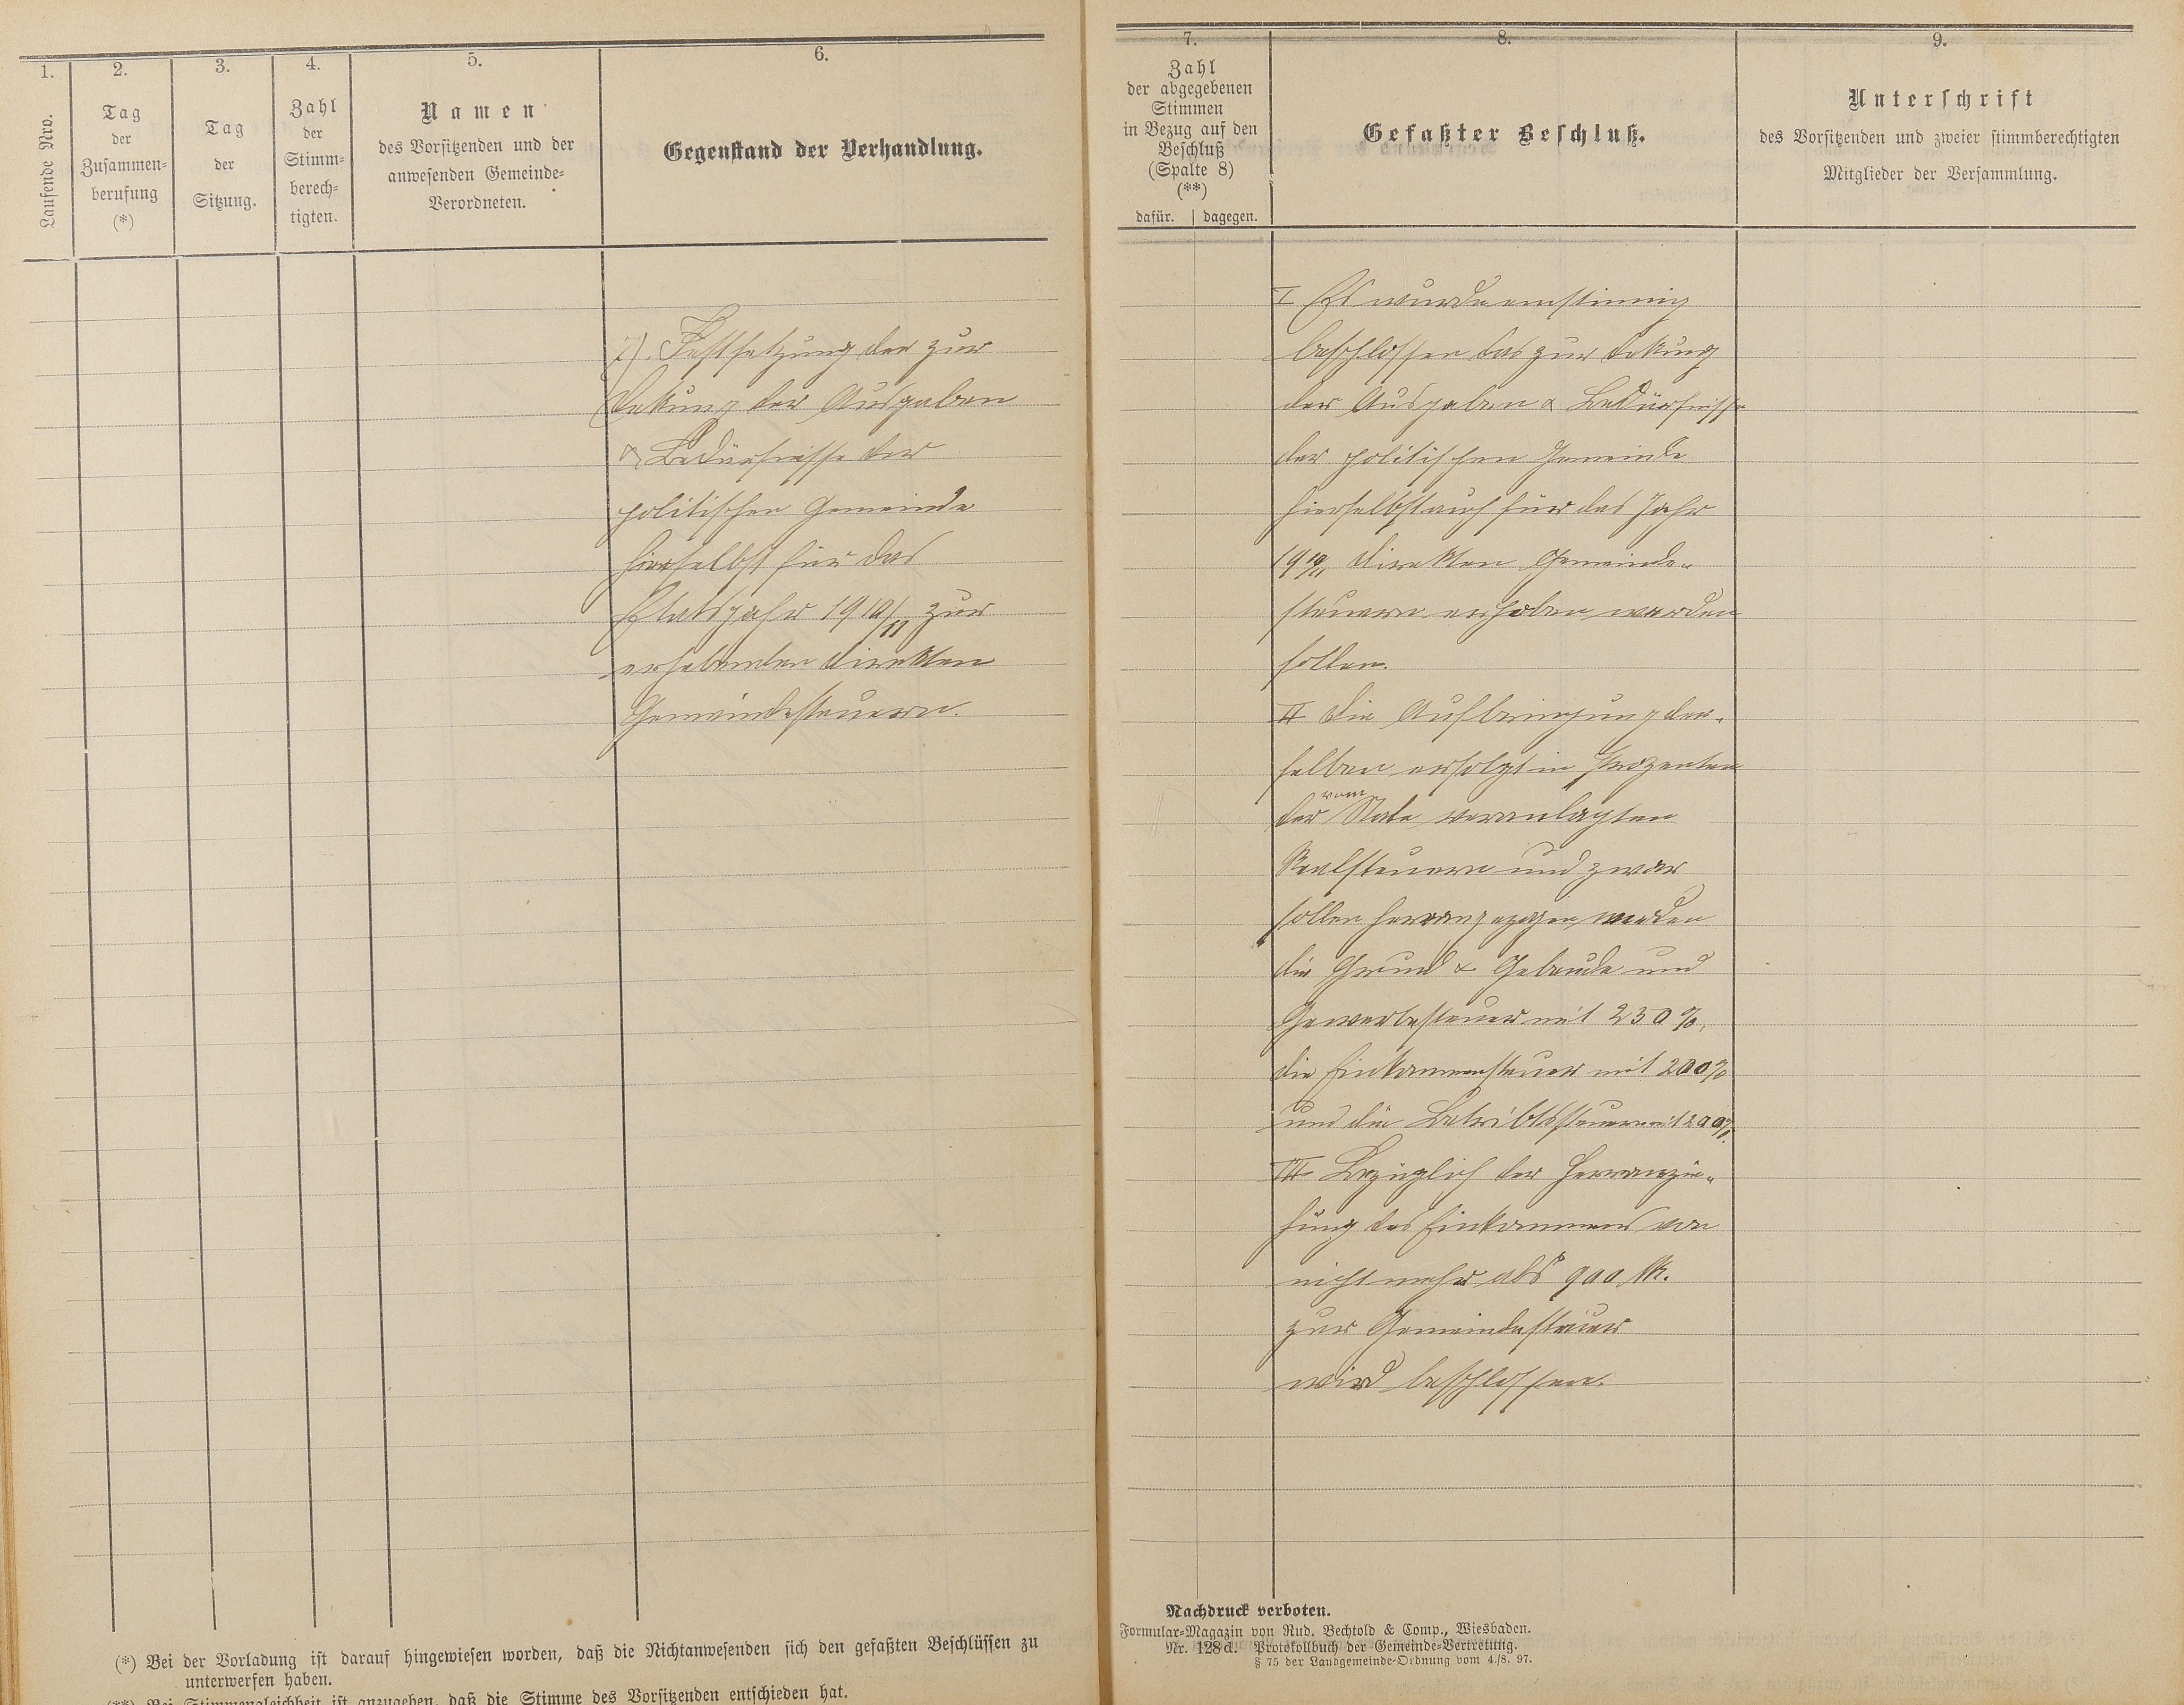 1.
Laufende Nro.
2.
Tag
der
Zusammen-
berufung
(*)
3.
Tag
der
Sitzung.
4.
Zahl
der
Stimm-
berech-
tigten.
5.
Namen
des Vorsitzenden und der
anwesenden Gemeinde-
Verordneten.
6.
Gegenstand der Verhandlung.
7). Festsetzung der zur
Dekung der Ausgaben
& Bedürfnisse der
politischen Gemeinde
hierselbst für das
Etatsjahr 1910/11 zur
erhebenden direkten
Gemeindesteuern.
(*) Bei der Vorladung ist darauf hingewiesen worden, daß die Nichtanwesenden sich den gefaßten Beschlüssen zu
unterwerfen haben.
(**) Bei Stimmengleichheit ist anzugeben, daß die Stimme des Vorsitzenden entschieden hat.
7.
Zahl
der abgegebenen
Stimmen
in Bezug auf den
Beschluß
(Spalte 8)
(**)
dafür. | dagegen.
8.
Gefaßter Beschluß.
9.
Unterschrift
des Vorsitzenden und zweier stimmberechtigten
Mitglieder der Versammlung.
I Es wurde einstimig
beschlossen das zur Dekung
der Ausgaben & Bedürfnisse
der politischen Gemeinde
hierselbst auch für das Jahr
1910/11 direkten Gemeinde-
steuern erhoben werden
sollen.
II Die Aufbringung der-
selben erfolgt in Prozenten
der vom State veranlagten
Realsteuern und zwar
sollen herrangezogen werden
die Grund & Gebeude und
Gewerbesteuer mit 230 %,
die Einkommensteuer mit 200%
und die Betribssteuer mit 200%.
III Bezüglich der Herranzie-
hung des Einkommens von
nicht mehr als 900 M.
zur Gemeindesteuer
wird beschlossen.
Nachdruck verboten.
Formular-Magazin von Rud. Bechtold & Comp., Wiesbaden.
Nr. 128d. Protokollbuch der Gemeinde-Vertretung.
§ 75 der Landgemeinde-Ordnung vom 4./8. 97.